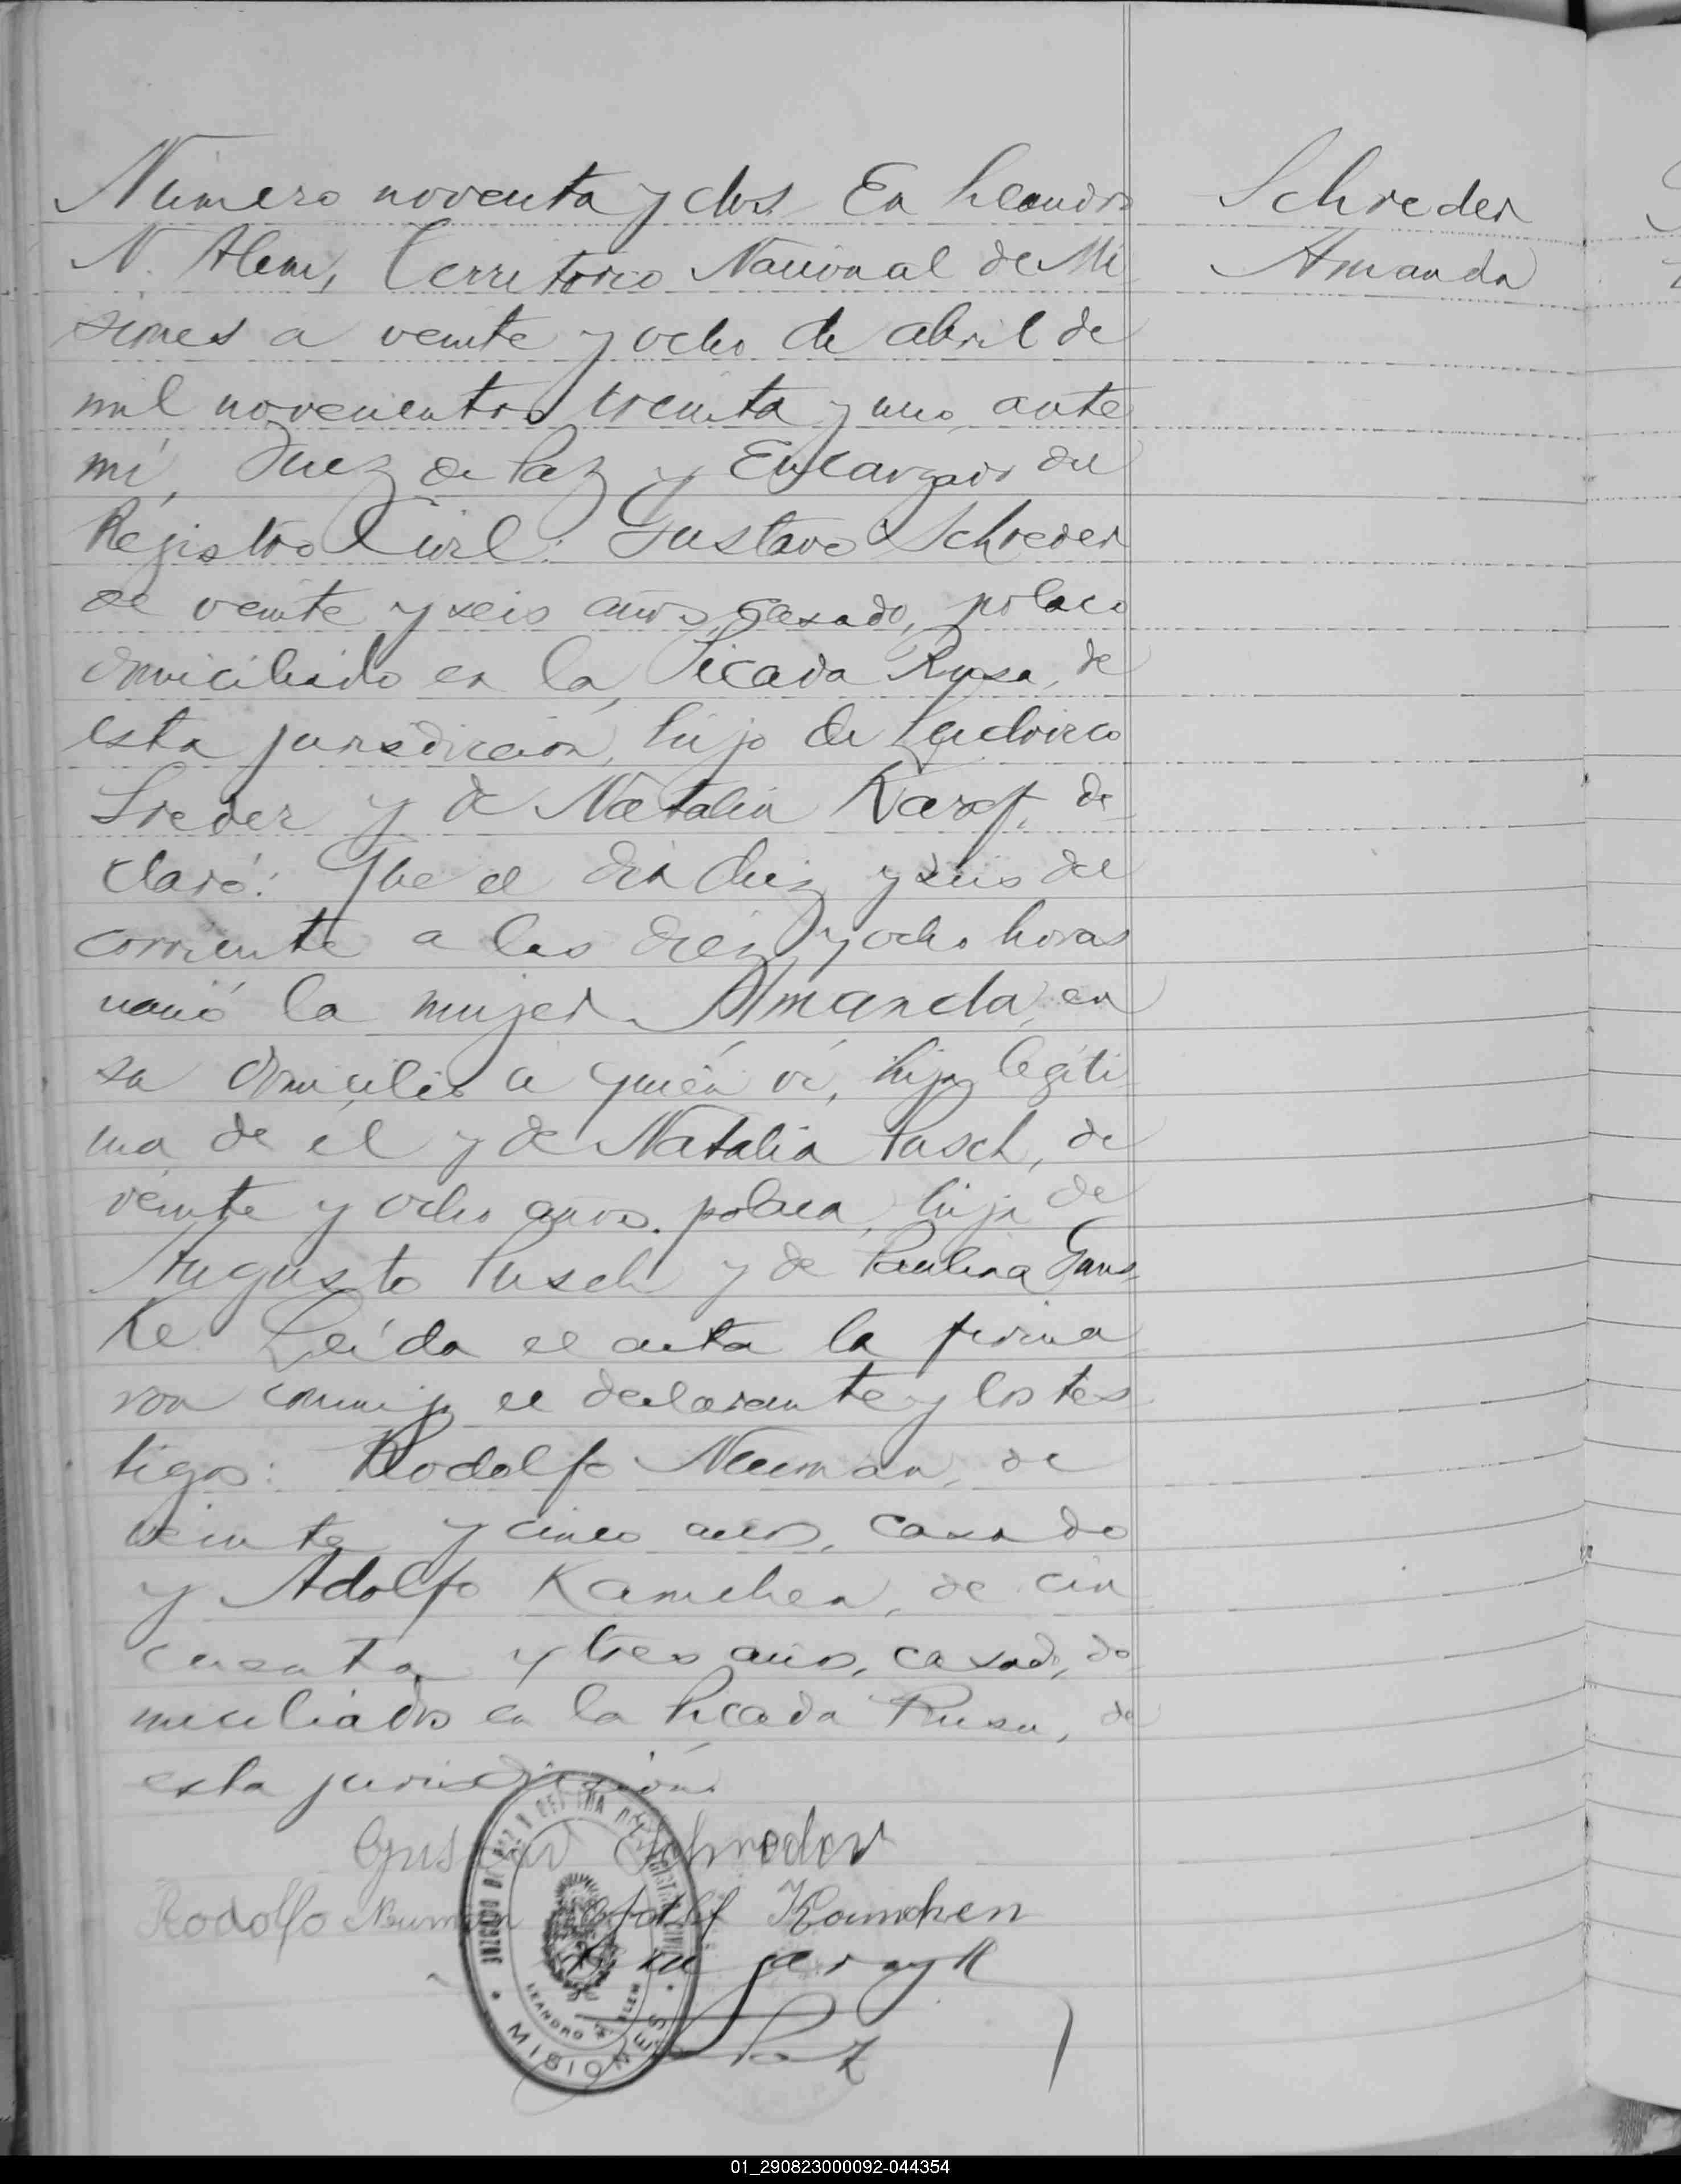 Número noventa y dos. En Leandro
N. Alem, Territorio Nacional de Mi
siones a veinte y ocho de abril de
mil novecientos treinta y uno, ante
mí, Juez de Paz y Encargado del
Registro Civil: Gustavo Schreder
de veinte y seis años, casado, polaco
domiciliado en la Picada Rusa, de
esta jurisdicción, hijo de Ludovico
Sreder y de Natalia de
claró: Que el día diez y seis del
corriente a las diez y ocho horas
nació la mujer Amanda, en
su domicilio a quién ví, hija legíti
ma de el y de Natalia Pusch, de
veinte y ocho años, polaca, hija de
Augusto Pusch y de Paulina Gans
ke. Leída el acta la firma
ron conmigo el declarante y los tes
tigos: Rodolfo Neuman, de
veinte y cinco años, casado
y Adolfo Kamchen, de cin
cuenta y tres años, casado, do
miciliados en la Picada Rusa, de
esta jurisdicción.
Gustav Schreder
Rodolfo Neuman Adolf Kamchen
JUZGADO DE PAZ
LEANDRO N. ALEM
MISIONES
Schreder
Amanda
01_290823000092-044354